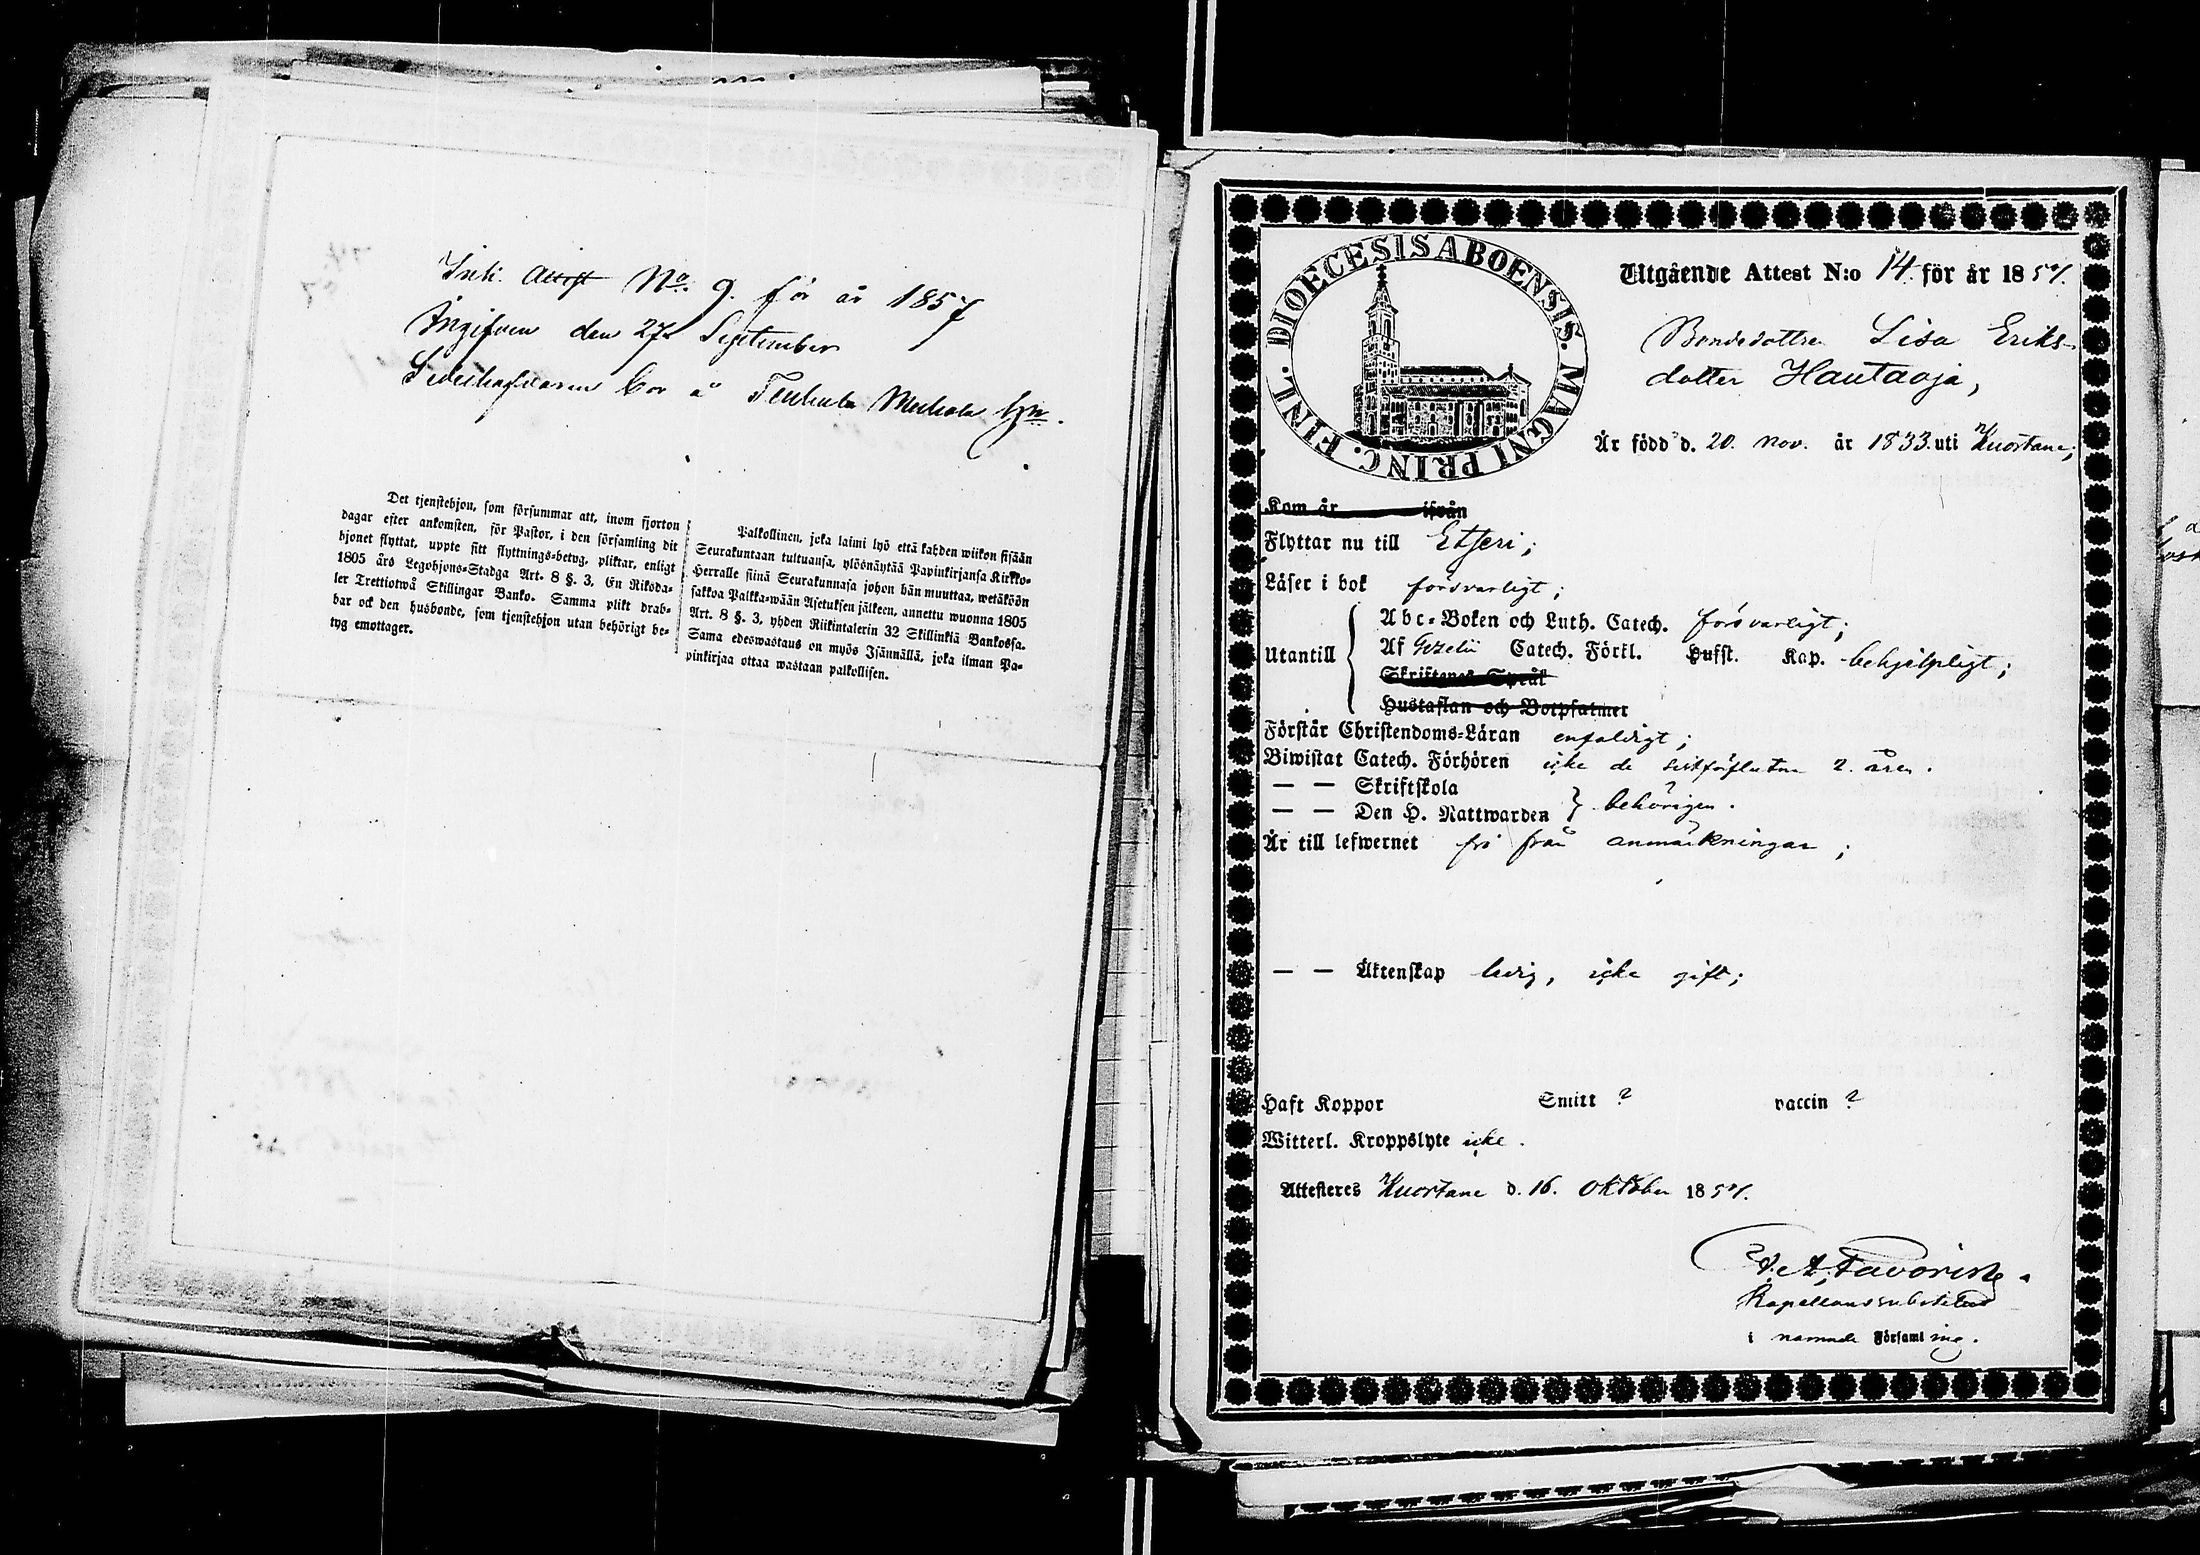 Ink. Attest No. 9. för år 1857
Angifven den 27 September
bor å
Det tjenstehjon, som försummar att, inom fjorton
dagar efter ankomsten, för Pastor, i den församling dit
hjonet flyttat, uppte sitt flyttnings=betyg, pliktar, enligt
1805 års Legohjons=Stadga Art. 8 §. 3, En Riksda=
ler Trettiotwå Skillingar Banko. Samma plikt drab=
bar ock den husbonde, som tjenstehjon utan behörigt be=
tyg emottager.
Palkollinen, joka laimi lyö että kahden wiikon sisään
Seurakuntaan tultuansa, ylösnäytää Papinkirjansa Kirkko=
Herralle siinä Seurakunnasa johon hän muuttaa, wetäköön
sakkoa Palkka=wään Asetuksen jälkeen, annettu wuonna 1805
Art. 8 §. 3, yhden Riikintalerin 32 Skillinkiä Bankossa.
Sama edeswastaus on myös Isännällä, joka ilman Pa=
pinkirjaa ottaa wastaan palkollisen.
DIOECESIS ABOENSIS. MAGNI PRINC. FINL.
Utgående Attest N:o 14. för år 1857.
Bondedottren Lisa Eriks-
dotter Hautaoja,
Är född d. 20. nov. år 1833. uti Kuortane;
Kom år ifrån
Flyttar nu till Etseri;
Läser i bok försvarligt;
Utantill
Abc=Boken och Luth. Catech. försvarligt;
Af Gezelii Catech. Förkl. Hufst. Kap. behjelpligt;
Skriftenes Språk
Hustaflan och Botpsalmer
Förstår Christendoms=Läran enfaldigt;
Biwistat Catech. Förhören icke de sistförflutna 2. åren.
— — Skriftskola
— — Den H. Nattwarden } behörigen.
Är till lefwernet fri från anmärkningar;
— — Äktenskap ledig, icke gift;
Haft Koppor Smitt ? vaccin ?
Witterl. Kroppslyte icke.
Attesteres Kuortane d. 16. Oktober 1857.
Favorin
Kapellanssubstitut
i nämnde Församling.